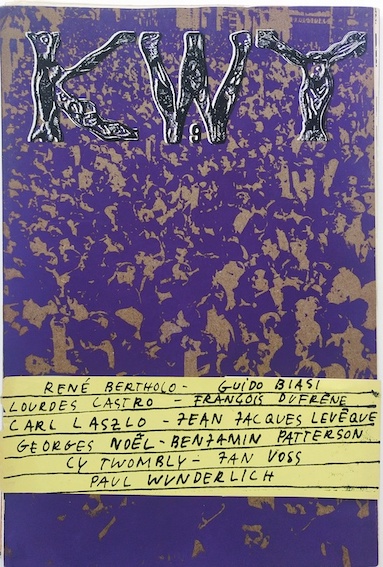 KWY
9
RENÉ BERTHOLO - GUIDO BIASI
LOURDES CASTRO - FRANÇOIS DUFRÊNE
CARL LASZLO - JEAN JACQUES LEVÊQUE
GEORGES NOËL - BENJAMIN PATTERSON
CY TWOMBLY - JAN VOSS
PAUL WUNDERLICH